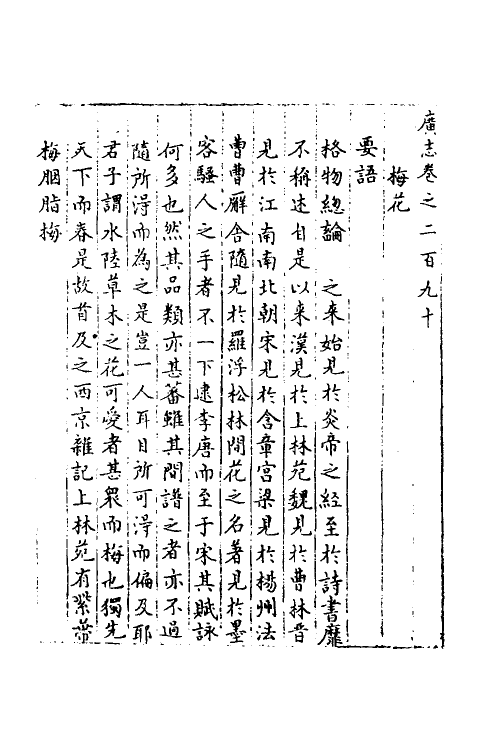 廣志卷之二百九十
梅花
要語
格物總論　之来始見扵炎帝之經至扵詩書靡
不稱述自是以来漢見扵上林苑魏見扵曹林晋
見扵江南南北朝宋見扵含章宫梁見扵楊州法
曹曹廨舍隨見扵羅浮松林間花之名著見扵墨
客騷人之手者不一下逮李唐而至于宋其賦詠
何多也然其品類亦甚蕃雖其間譜之者亦不過
隨所淂而為之是豈一人耳目所可淂而偏及耶
君子謂水陸草木之花可愛者甚衆而梅也獨先
天下而春是故首及之西京雜記上林苑有紫蒂
梅胭脂梅